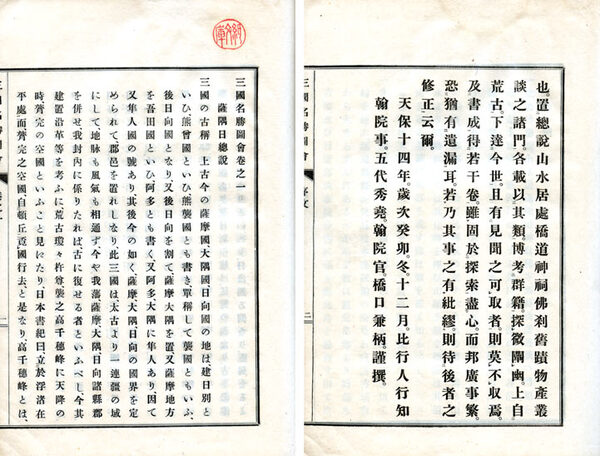 三國名勝圖會 序文 二
也。置總說山水居處橋道神祠佛刹舊蹟物產叢
談之諸門。各載以其類博考群籍。探微闡幽。上自
荒古。下逮今世。且有見聞之可取者。則莫不收焉。
及書成得若干卷。雖固於探索盡心。而邦廣事繁。
恐猶有遺漏耳。若乃其事之有紕繆。則待後者之
修正云爾。
天保十四年。歲次癸卯。冬。十二月。比行人行知
翰院事。五代秀堯。翰院官。橋口兼柄。謹撰。
三國名勝圖會卷之一
薩隅日總說
三國の古稱 上古今の薩摩國大隅國日向國の地は建日別と
いひ熊曾國といひ熊襲國とも書き單稱して襲國ともいふ、
後日向國となり、又後日向を割て薩摩國を置又薩摩地方
を吾田國といひ阿多とも書く又阿多大隅に隼人あり因て
又隼人國の號あり、其後今の如く薩摩大隅日向の國界を定
められて郡邑を置れしなり此三國は太古より一連疆の域
にして地脉も風氣も相通ず、今や我藩薩摩、大隅、日向諸縣郡
を併せ我封內に係りたれば古に復せる者といふべし今其
建置沿革等を考ふに荒古瓊々杵尊襲之高千穗峰に天降の
時、膂宍の空國といふこと見ゆたり日本書紀曰立於浮渚在
平處而膂宍之空國自頓丘覓國行去とは是なり高千穗峰とは、